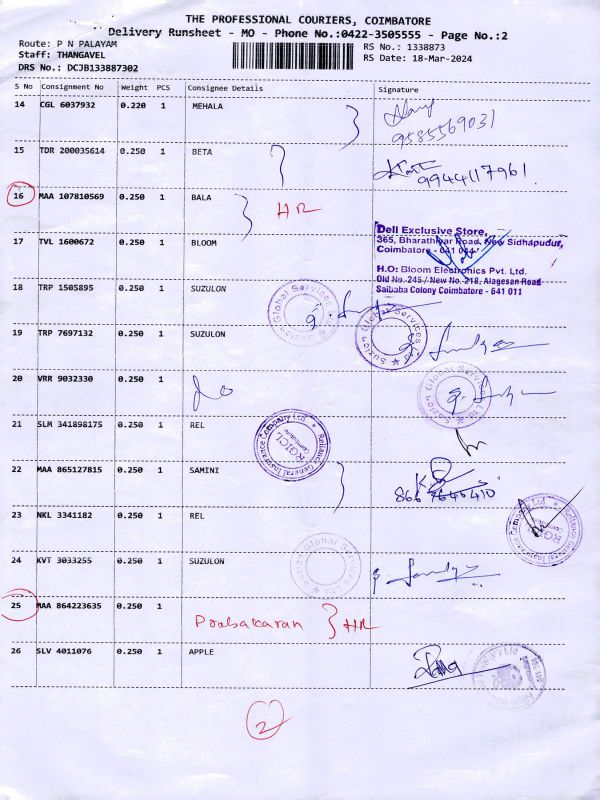 THE PROFESSIONAL COURIERS, COIMBATORE
Delivery Runsheet - MO - Phone No.:0422-3505555 - Page No.:2
Route: P N PALAYAM
RS No.: 1338873
Staff: THANGAVEL
RS Date: 18-Mar-2024
DRS No.: DCJB133887302
S No Consignment No Weight PCS Consignee Details Signature
14 CGL 6037932 0.220 1 MEHALA
9585569031
15 TDR 200035614 0.250 1 BETA
9944117961
16 MAA 107810569 0.250 1 BALA
HR
Dell Exclusive Store,
365, Bharathiyar Road, New Sidhapudur,
Coimbatore - 641 044
17 TVL 1600672 0.250 1 BLOOM
H.O: Bloom Electronics Pvt. Ltd.
Old No. 245 / New No. 218, Alagesan Road
Saibaba Colony Coimbatore - 641 011
18 TRP 1505895 0.250 1 SUZULON
Suzlon Global Services Ltd
19 TRP 7697132 0.250 1 SUZULON
Suzlon Global Services Ltd
20 VRR 9032330 0.250 1
Suzlon Global Services Ltd
21 SLM 341898175 0.250 1 REL
Reliance General Insurance Company Ltd
RGICL
Coimbatore
22 MAA 865127815 0.250 1 SAMINI
866 7646410
23 NKL 3341182 0.250 1 REL
Reliance General Insurance Company Ltd
RGICL
24 KVT 3033255 0.250 1 SUZULON
Suzlon Global Services Ltd
25 MAA 864223635 0.250 1
Prabakaran HR
26 SLV 4011076 0.250 1 APPLE
2